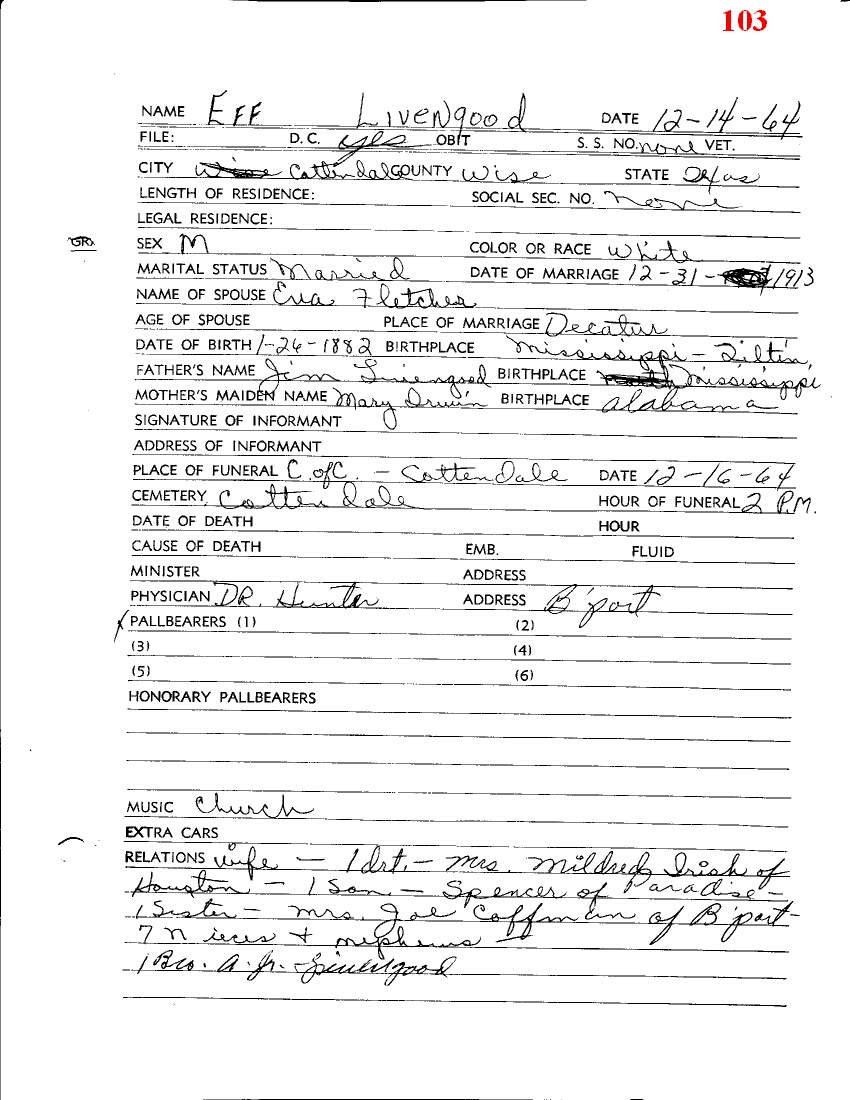 103
NAME Eff Livengood DATE 12-14-64
FILE: D.C. yes OBIT S. S. NO. none VET.
CITY Cottendale COUNTY Wise STATE Texas
LENGTH OF RESIDENCE: SOCIAL SEC. NO. none
LEGAL RESIDENCE:
SEX M COLOR OR RACE White
MARITAL STATUS Married DATE OF MARRIAGE 12-31-1913
NAME OF SPOUSE Eva Fletcher
AGE OF SPOUSE PLACE OF MARRIAGE Decatur
DATE OF BIRTH 1-26-1882 BIRTHPLACE Mississippi -
FATHER'S NAME Jim Livengood BIRTHPLACE Mississippi
MOTHER'S MAIDEN NAME Mary BIRTHPLACE Alabama
SIGNATURE OF INFORMANT
ADDRESS OF INFORMANT
PLACE OF FUNERAL C. of C. - Cottendale DATE 12-16-64
CEMETERY Cottendale HOUR OF FUNERAL 2 P.M.
DATE OF DEATH HOUR
CAUSE OF DEATH EMB. FLUID
MINISTER ADDRESS
PHYSICIAN DR. Hunter ADDRESS B'port
PALLBEARERS (1) (2)
(3) (4)
(5) (6)
HONORARY PALLBEARERS
MUSIC Church
EXTRA CARS
RELATIONS wife - 1 drt. - Mrs. Mildred Irish of
Houston - 1 Son - Spencer of Paradise -
1 Sister - Mrs. Joe Coffman of B'port -
7 Nieces + nephews -
1 Bro. A. Jr. - Livengood